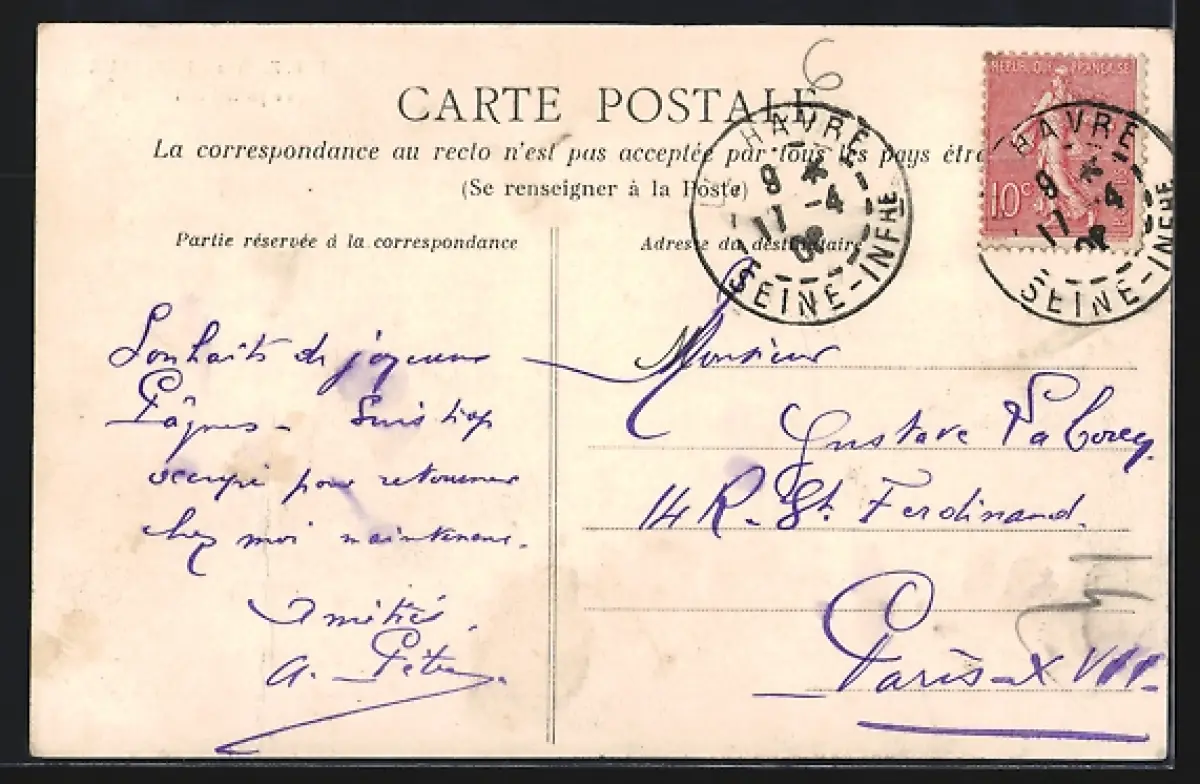 6
CARTE POSTALE
La correspondance au recto n'est pas acceptée par tous les pays étra
(Se renseigner à la Poste)
REPUBLIQUE FRANCAISE
10c
HAVRE
9 *
11 -4
08
SEINE-INFRE
HAVRE
9 *
11 -4
08
SEINE-INFRE
Partie réservée à la correspondance
Adresse du destinataire
Souhaits de joyeuses
Pâques - Suis trop
occupé pour retourner
chez moi maintenant.
Amitiés.
a.
Monsieur
Gustave
14 R. St. Ferdinand.
Paris-XVII